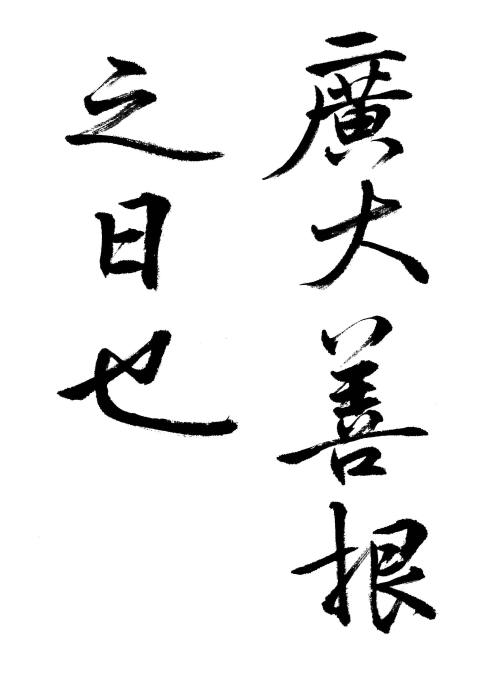 廣大善根
之日也